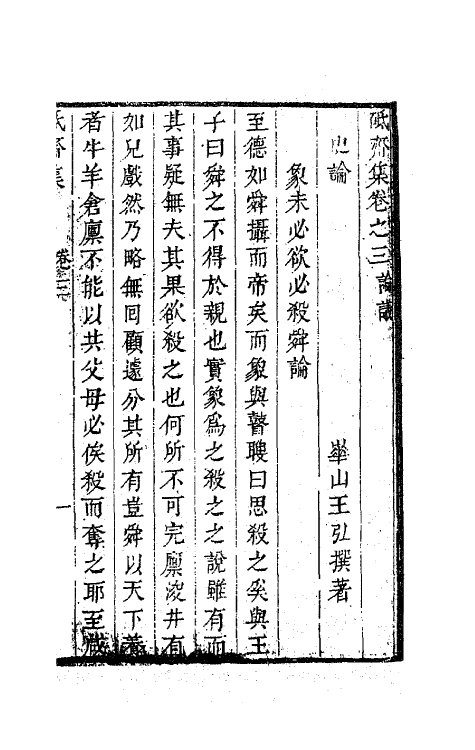 砥齋集卷之三論議
史論
華山王弘撰著
象未必欲必殺舜論
至德如舜攝而帝矣而象與瞽瞍曰思殺之矣與王
子曰舜之不得於親也實象爲之殺之之說雖有而
其事疑無夫其果欲殺之也何所不可完廩浚井有
如兒戲然乃略無回顧遽分其所有豈舜以天下養
者牛羊倉廩不能以共父母必俟殺而奪之耶至
砥齋集
卷三
一